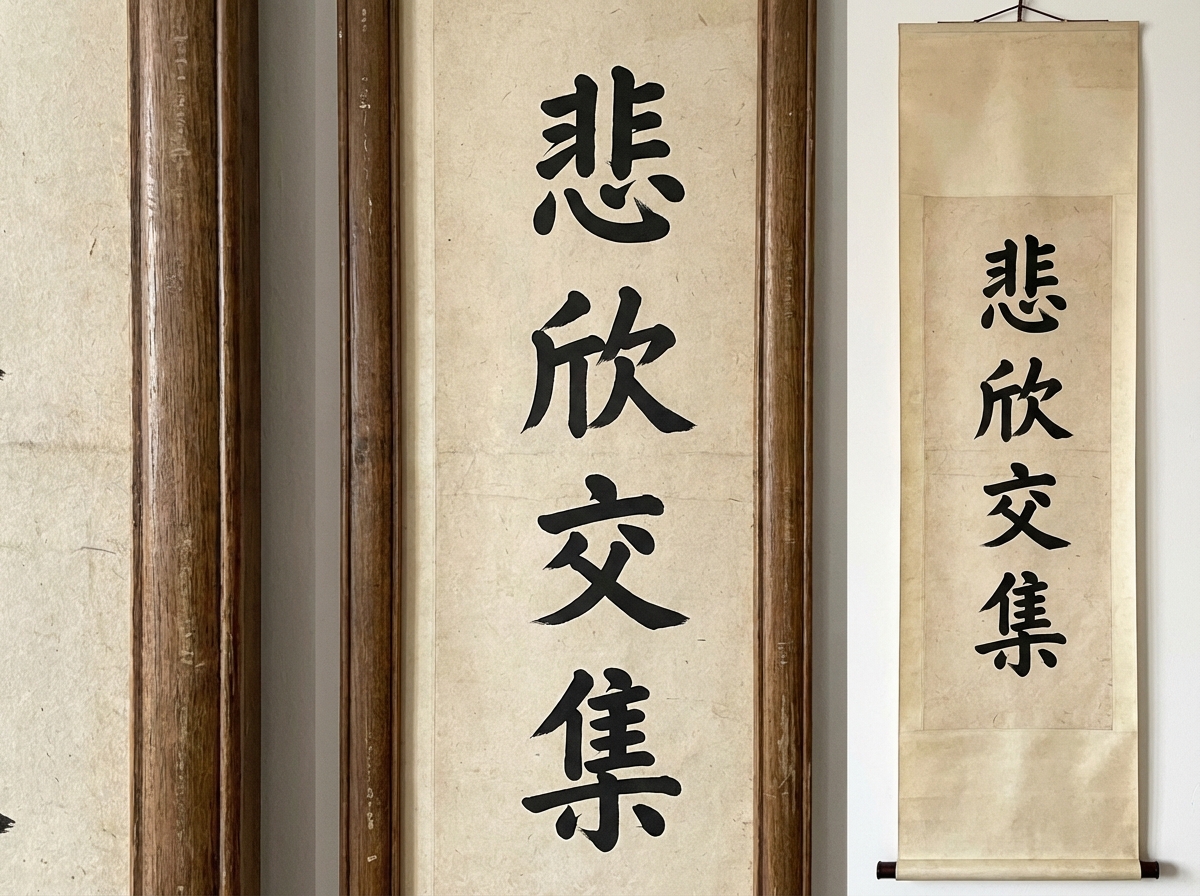 悲欣交集
悲欣交集